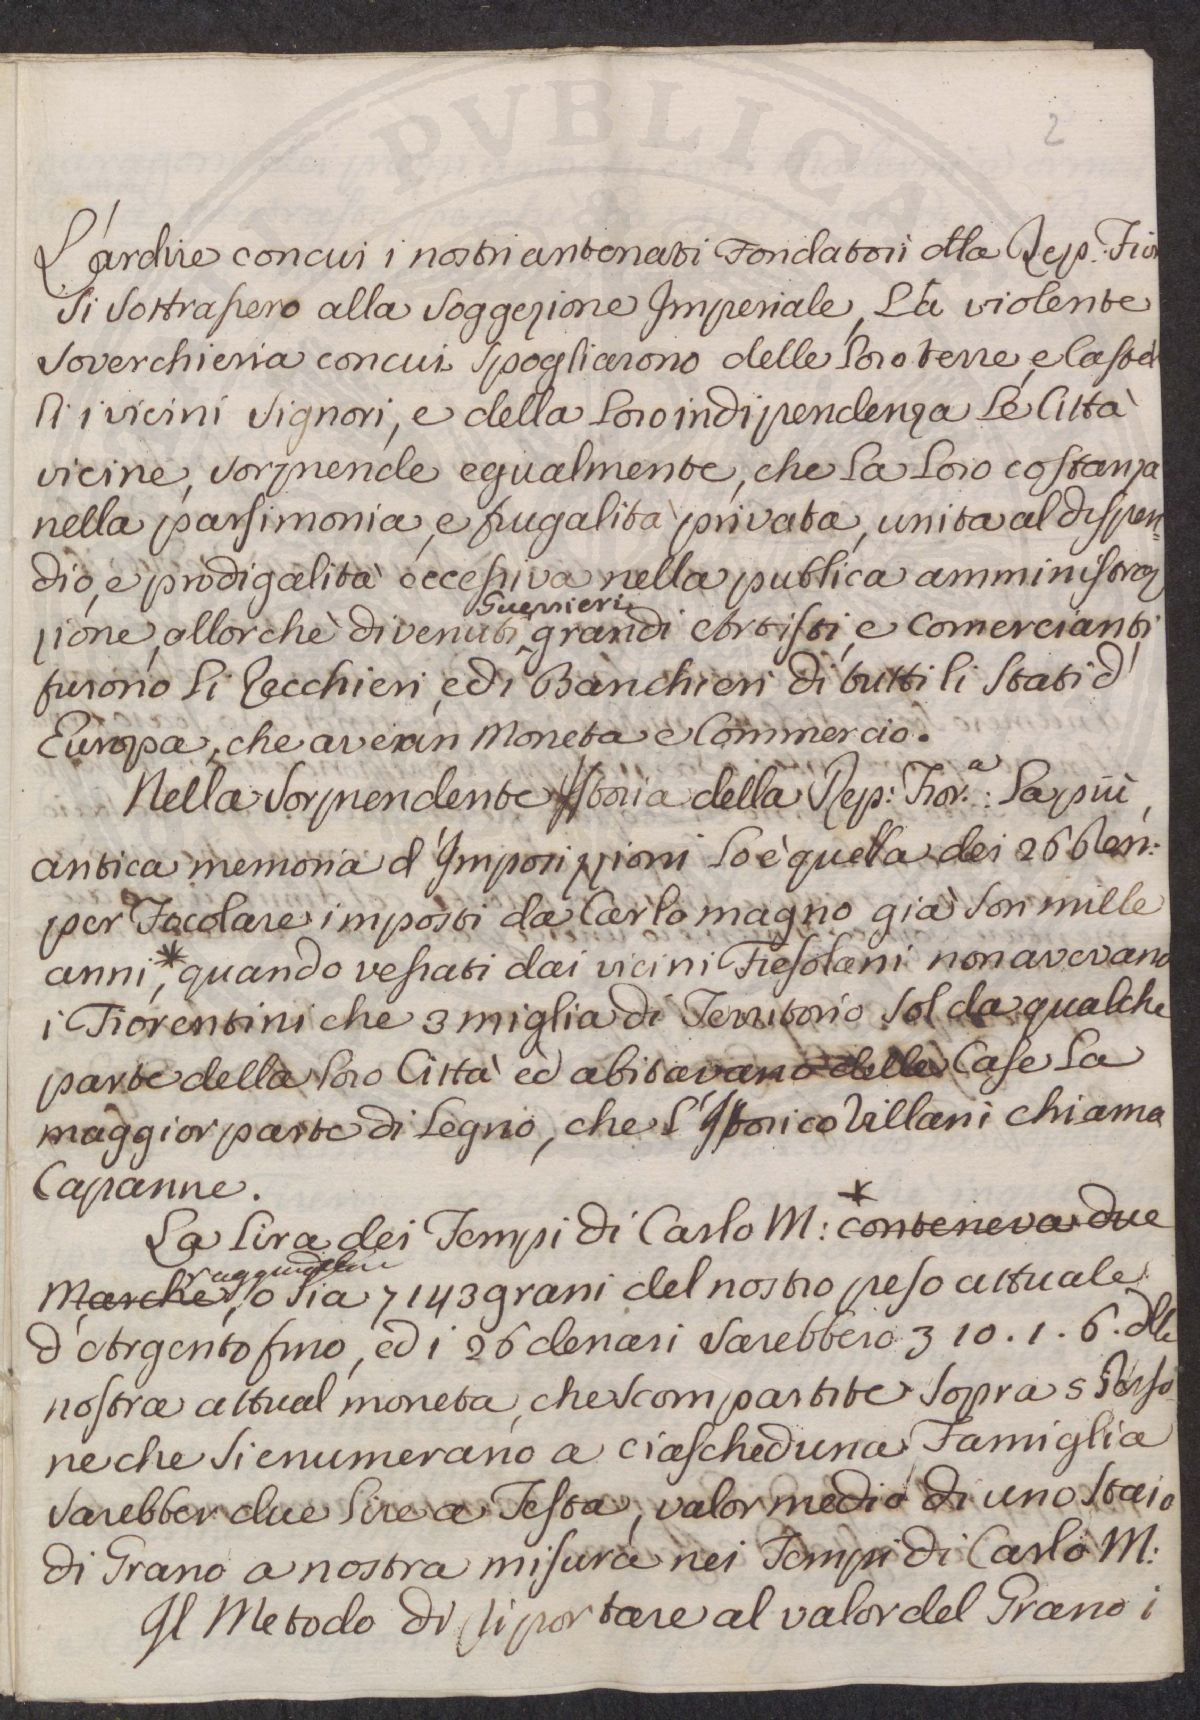 PVBLICA
2
L'ardire concui i nostri antenati Fondatori dlla Rep. Fior
si sottrassero alla soggezione Imperiale, La violente
soverchieria concui spogliarono delle loro terre, e Castel
li i vicini signori, e della loro indipendenza le Città
vicine, sorprende egualmente, che la loro costanza
nella parsimonia, e frugalità privata, unita al dispen=
dio, e prodigalità eccessiva nella publica amministra
zione, allorchè divenuti grandi Artisti, e Comercianti
Guerrieri
furono li Zecchieri, ed i Banchieri di tutti li Stati d'
Europa, che avean Moneta e Commercio.
Nella sorprendente Istoria della Rep: Fior.a: la più
antica memoria d'Imposizzioni lo è quella dei 26 den:
per Focolare imposti da Carlo magno già son mille
anni,* quando vessati dai vicini Fiesolani non avevano
i Fiorentini che 3 miglia di Territorio sol da qualche
parte della loro Città ed abitavano delle Case la
maggior parte di Legno, che l'Istorico Villani chiama
Capanne.
La Lira dei Tempi di Carlo M: * conteneva due
Marche, o sia 7143 grani del nostro peso attuale
d'Argento fino, ed i 26 denari sarebbero 3 10.1.6. dlla
nostra attual moneta, che scompartite sopra 5 Perso
ne che si enumerano a ciascheduna Famiglia
sarebber due lire a Testa, valor medio di uno Staio
di Grano a nostra misura nei Tempi di Carlo M:
Il Metodo di riportare al valor del Grano i